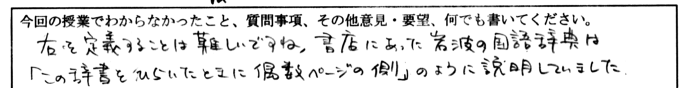 今回の授業でわからなかったこと、質問事項、その他意見・要望、何でも書いてください。
右を定義することは難しいですね。書店にあった岩波の国語辞典は
「この辞書をひらいたときに偶数ページの側」のように説明していました。